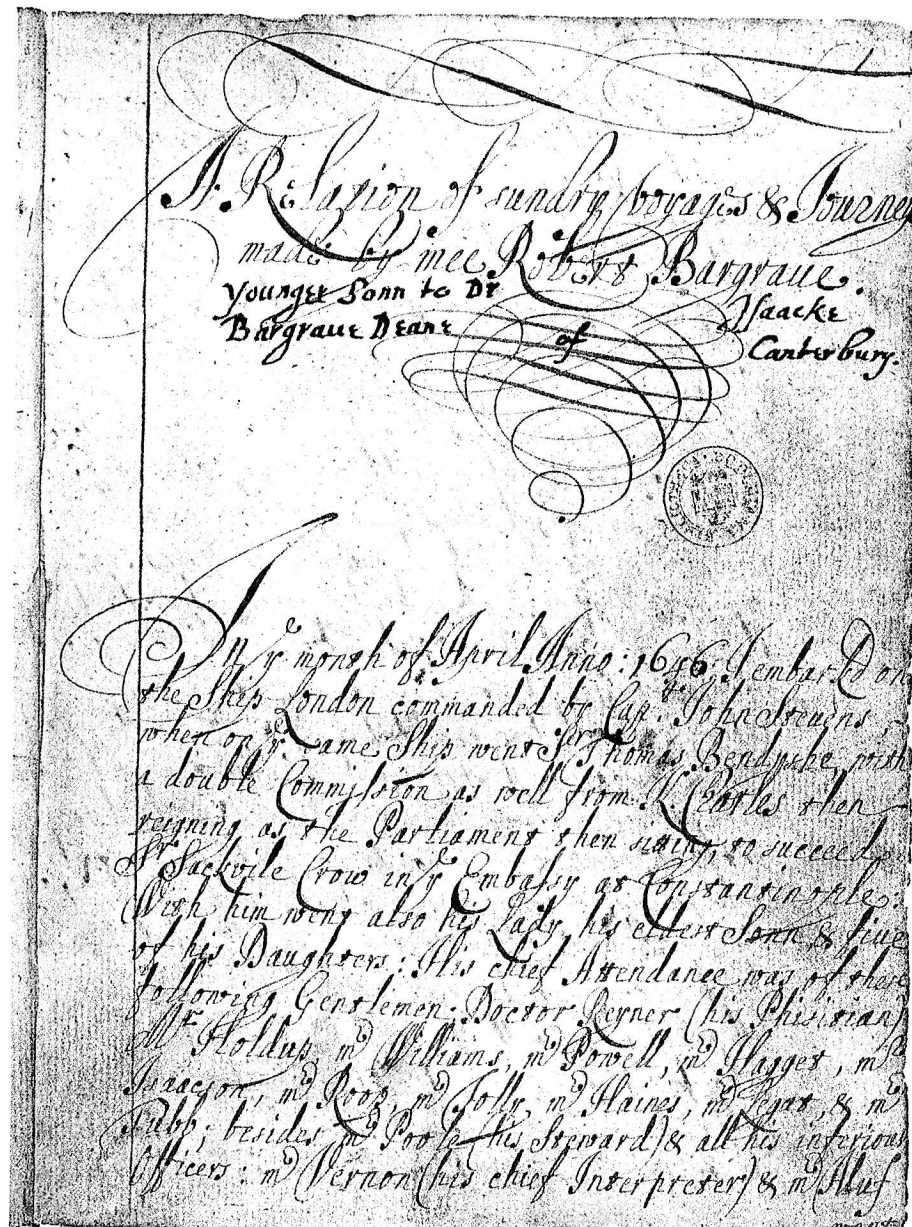 A Relation of sundry voyages & Journey
made by mee Robert Bargrave.
younger Sonn to Dr Isaacke
Bargrave Deane of Canterbury.
In yͤ month of April Anno: 1646 I embark'd on
the Ship London commanded by Capᵗ. John Stevens,
when on yͤ same Ship went Sʳ Thomas Bendyshe, with
a double Commission as well from K. Charles then
reigning as the Parliament then siting, to succeed
Sʳ Sackvile Crow in yͤ Embassy at Constantinople:
With him went also his Lady, his eldest Sonn & five
of his Daughters: His chief Attendance was of these
following Gentlemen: Doctor Reyner (his Phisitian)
Mʳ Holdup, mʳ Williams, mʳ Powell, mʳ Hagget, mʳ
Isaacson, mʳ Roos, mʳ Jolly, mʳ Haines, mʳ & mʳ
Tubb; besides mʳ Poole (his Steward) & all his inferiour
Officers: mʳ Vernon (his chief Interpreter) & mʳ